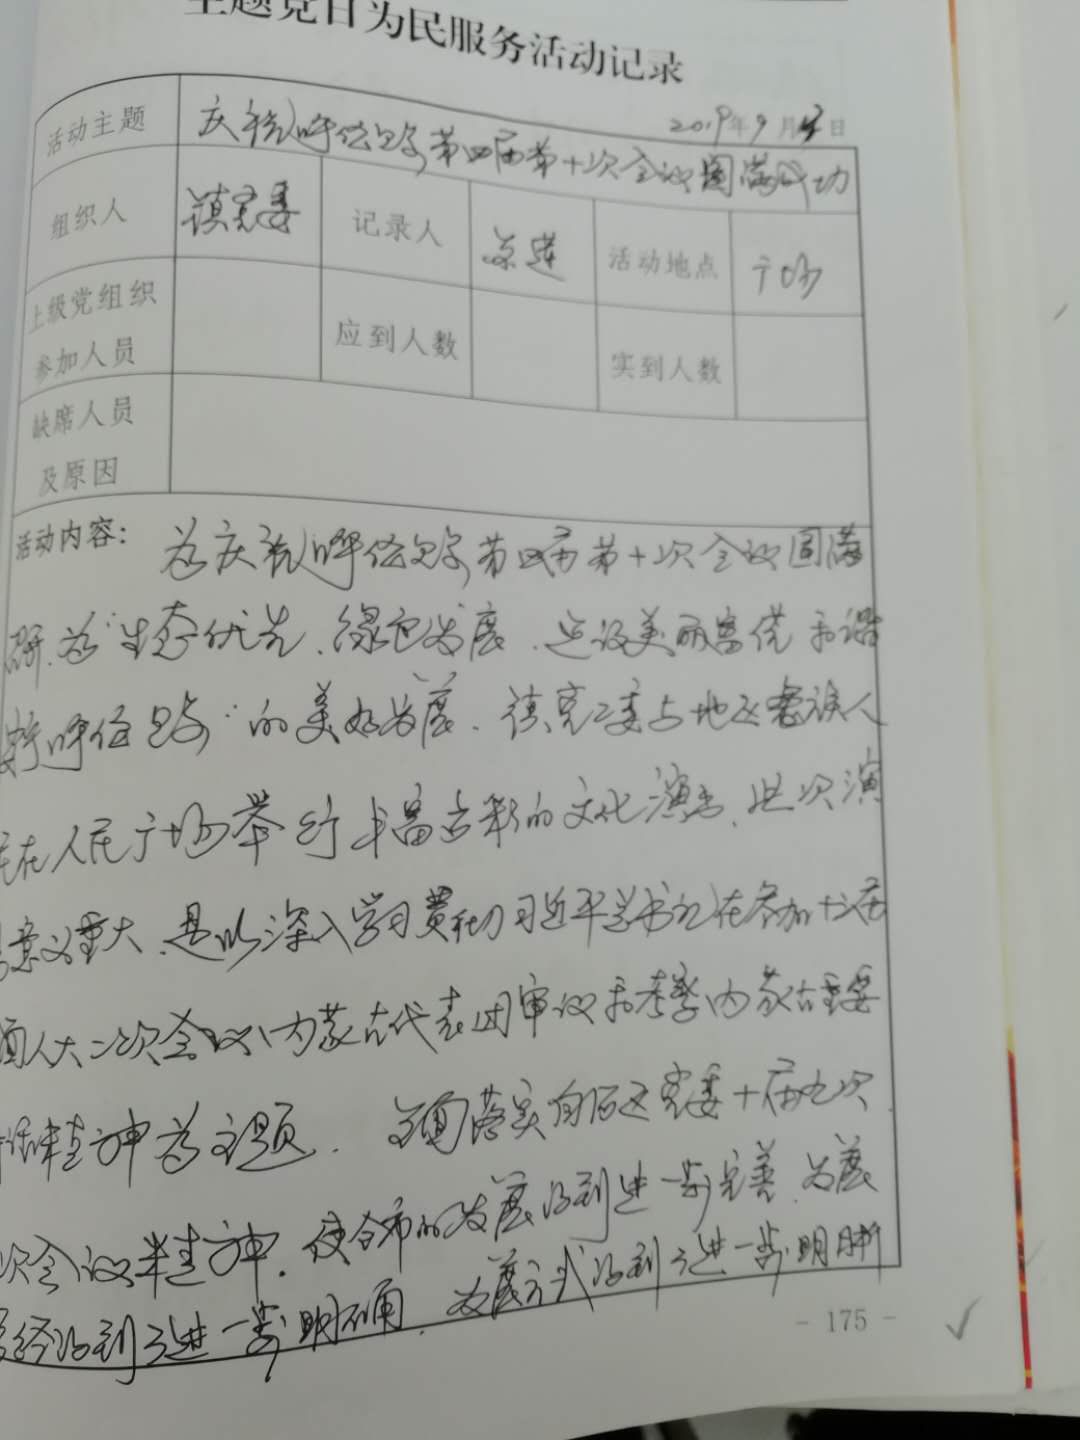 主题党日为民服务活动记录
2019年9月 日
活动主题 庆祝呼伦贝尔第四届第十次会议圆满成功
组织人 镇党委 记录人 活动地点 广场
上级党组织
参加人员 应到人数 实到人数
缺席人员
及原因
活动内容: 为庆祝呼伦贝尔第四届第十次会议圆满
为“生态优先、绿色发展、建设美丽富饶和谐
呼伦贝尔”的美好发展,镇党工委与地区
在人民广场举行丰富多彩的文化演出,此次演
意义重大,是以深入学习贯彻习近平总书记在参加十三届
人大二次会议内蒙古代表团审议和考察内蒙古重要
精神为主题,全面落实自治区党委十届九次
次会议精神,使全市的发展得到进一步完善,发展
得到了进一步明确,发展方式得到了进一步明晰
- 175 -